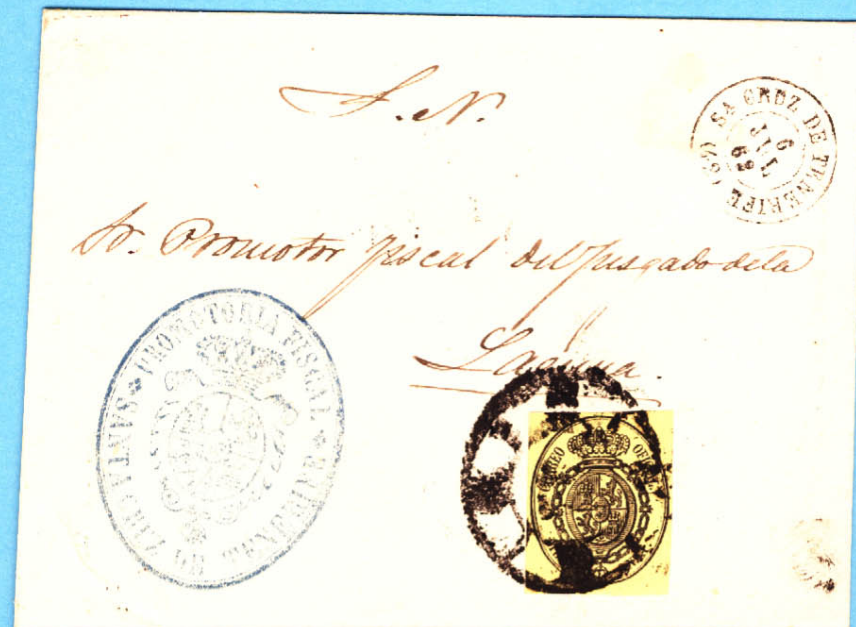 S. N.
STA CRUZ DE TENERIFE (49)
6
JUL
62
Sr. Promotor fiscal del Jusgado de la
Laguna.
PROMOTORIA FISCAL
SANTA CRUZ DE TENERIFE
CORREO OFICIAL